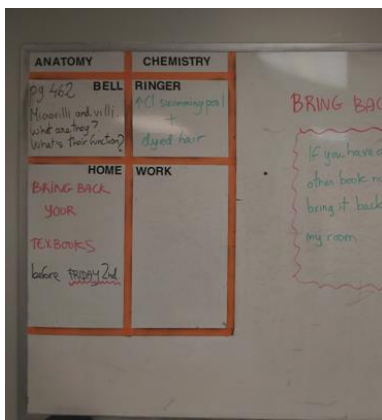 ANATOMY CHEMISTRY
BELL RINGER
pg 462
Microvilli and villi.
What are they?
What's their function?
↑Cl swimming pool
+
dyed hair
HOME WORK
BRING BACK
YOUR
TEXBOOKS
before FRIDAY 2nd
BRING BAC
If you have a
other book
bring it back
my room